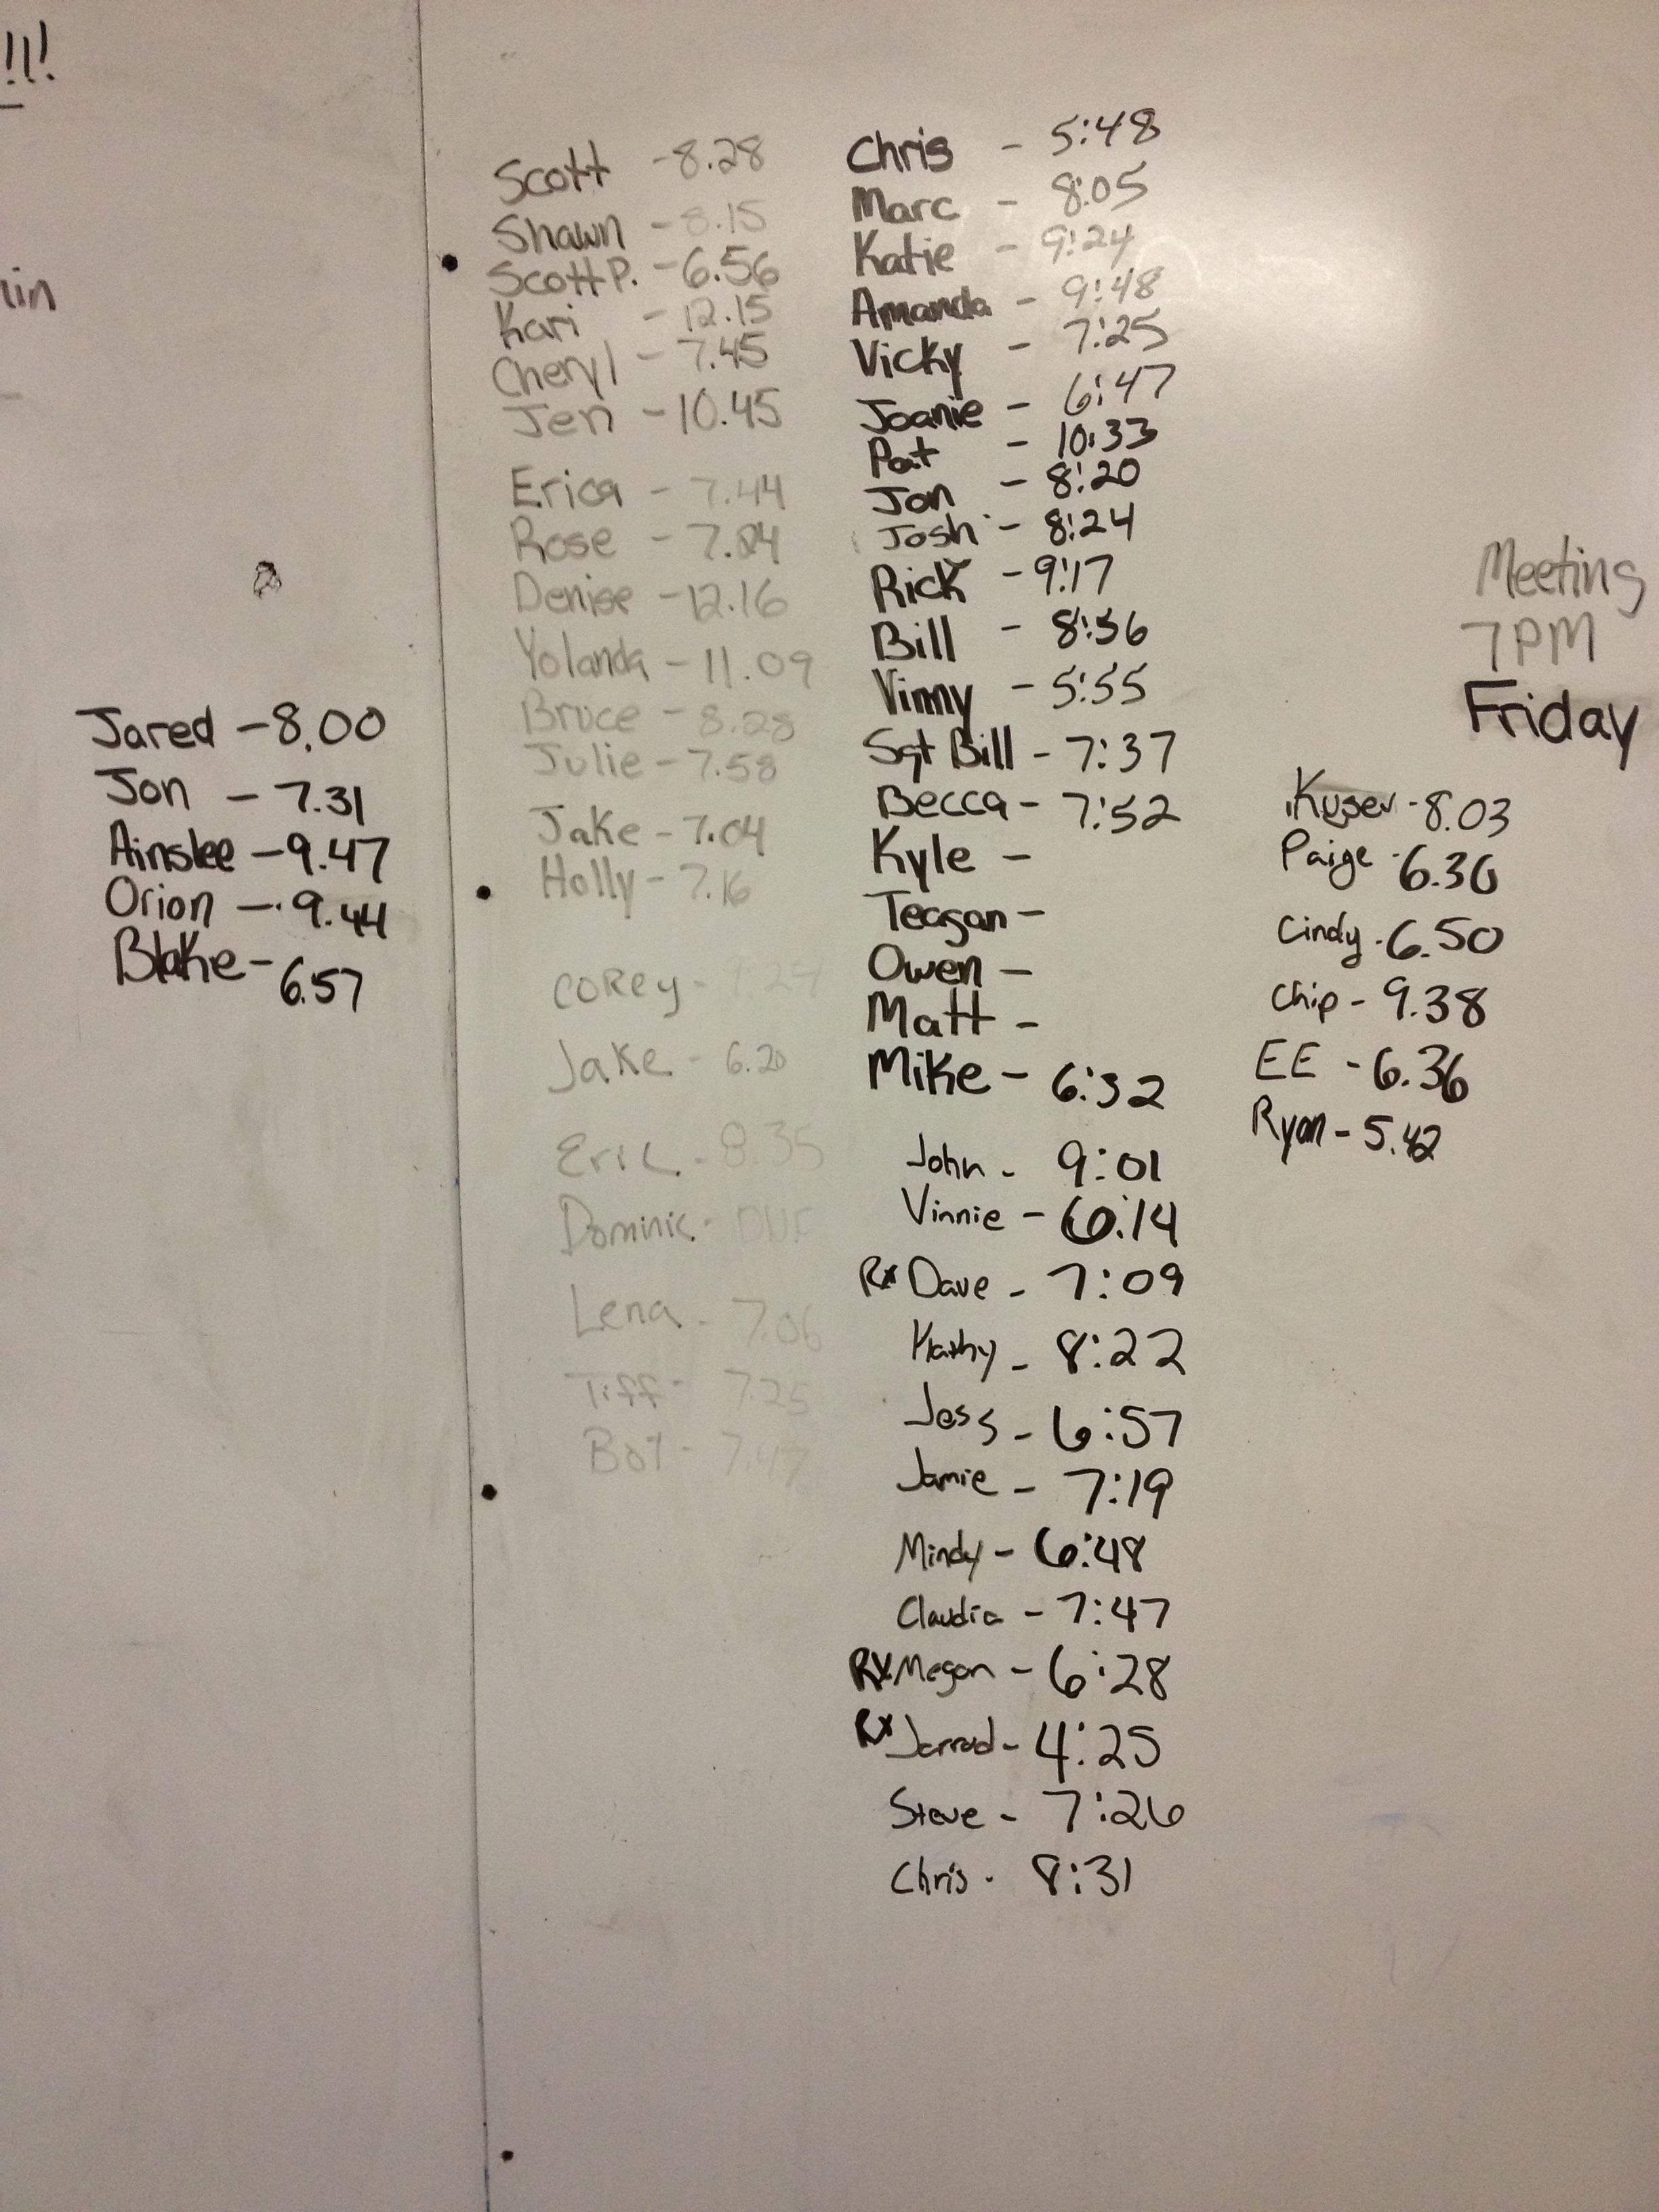 !!!
Jared - 8.00
Jon - 7.31
Ainslee - 9.47
Orion - 9.44
Blake - 6.57
Scott - 8.28
Shawn - 8.15
Scott P. - 6.56
Kari - 12.15
Cheryl - 7.45
Jen - 10.45
Erica - 7.44
Rose -
Denise - 12.16
Yolanda - 11.09
Bruce - 8.28
Julie - 7.58
Jake - 7.04
Holly - 7.16
Corey -
Jake - 6.20
Eric - 8.35
Dominic - DNF
Lena - 7.06
Tiff - 7.25
- 7.47
Chris - 5:48
Marc - 8:05
Katie - 9:24
Amanda - 9:48
Vicky - 7:25
Joanie - 6:47
Pat - 10:33
Jon - 8:20
Josh - 8:24
Rick - 9:17
Bill - 8:36
Vinny - 5:55
Sgt Bill - 7:37
Becca - 7:52
Kyle -
Teagan -
Owen -
Matt -
Mike - 6:32
John - 9:01
Vinnie - 6:14
Rx Dave - 7:09
Kathy - 8:22
Jess - 6:57
Jamie - 7:19
Mindy - 6:48
Claudia - 7:47
Rx Megan - 6:28
Rx Jarrod - 4:25
Steve - 7:26
Chris - 8:31
Meeting
7 PM
Friday
- 8.03
Paige - 6.30
Cindy - 6.50
Chip - 9.38
EE - 6.36
Ryan - 5.42